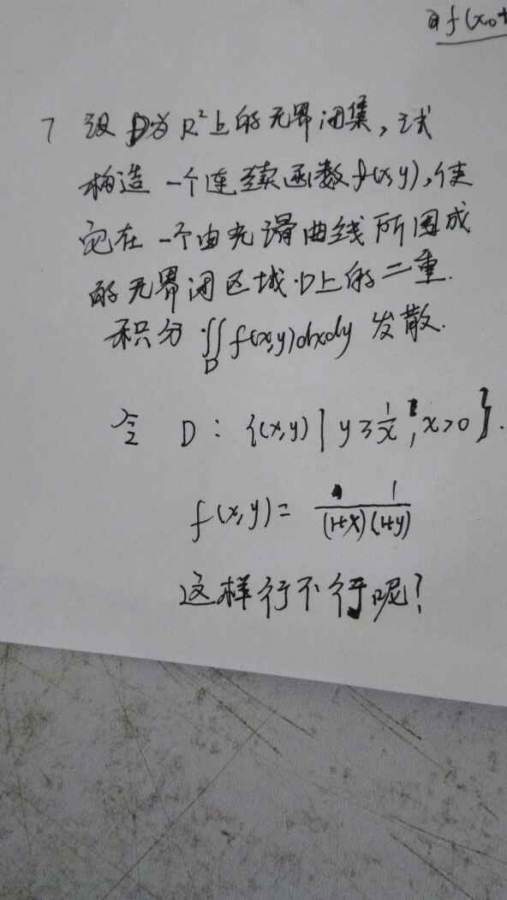 a f(x₀+
7 设 D为 R²上的无界闭集,试
构造一个连续函数f(x,y),使
它在一个由光滑曲线所围成
的无界闭区域D上的二重
积分 ∬_D f(x,y)dxdy 发散.
令 D: {(x,y) | y≥1/x, x>0}.
f(x,y)= 1/((1+x)(1+y))
这样行不行呢?